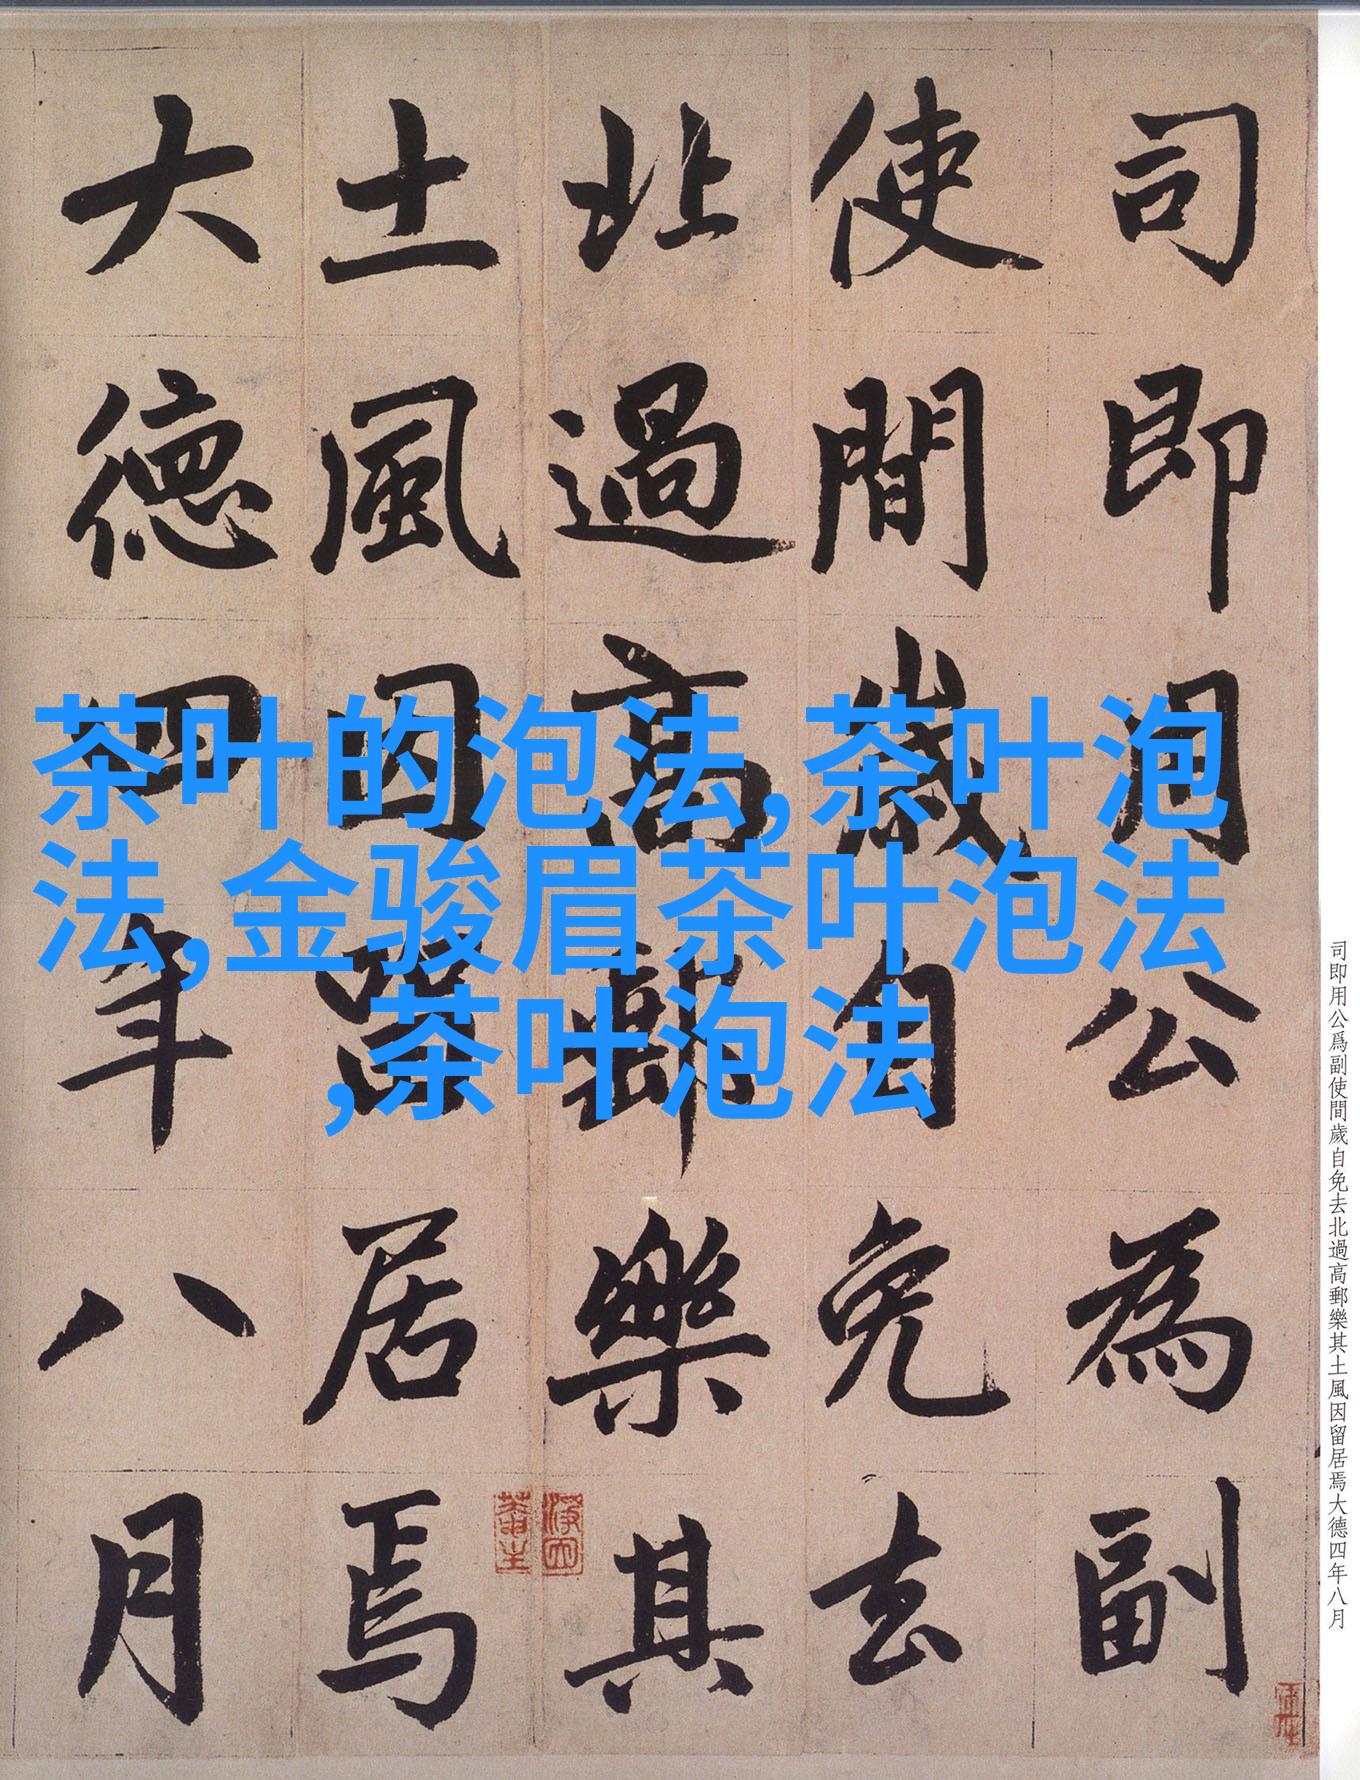 司即用公為副
使間歲自免去
北過高郵樂其
土風因留居焉
大德四年八月
茶叶的泡法,茶叶泡
法,金骏眉茶叶泡法
,茶叶泡法
司即用公爲副使間歲自免去北過高郵樂其土風因留居焉大德四年八月